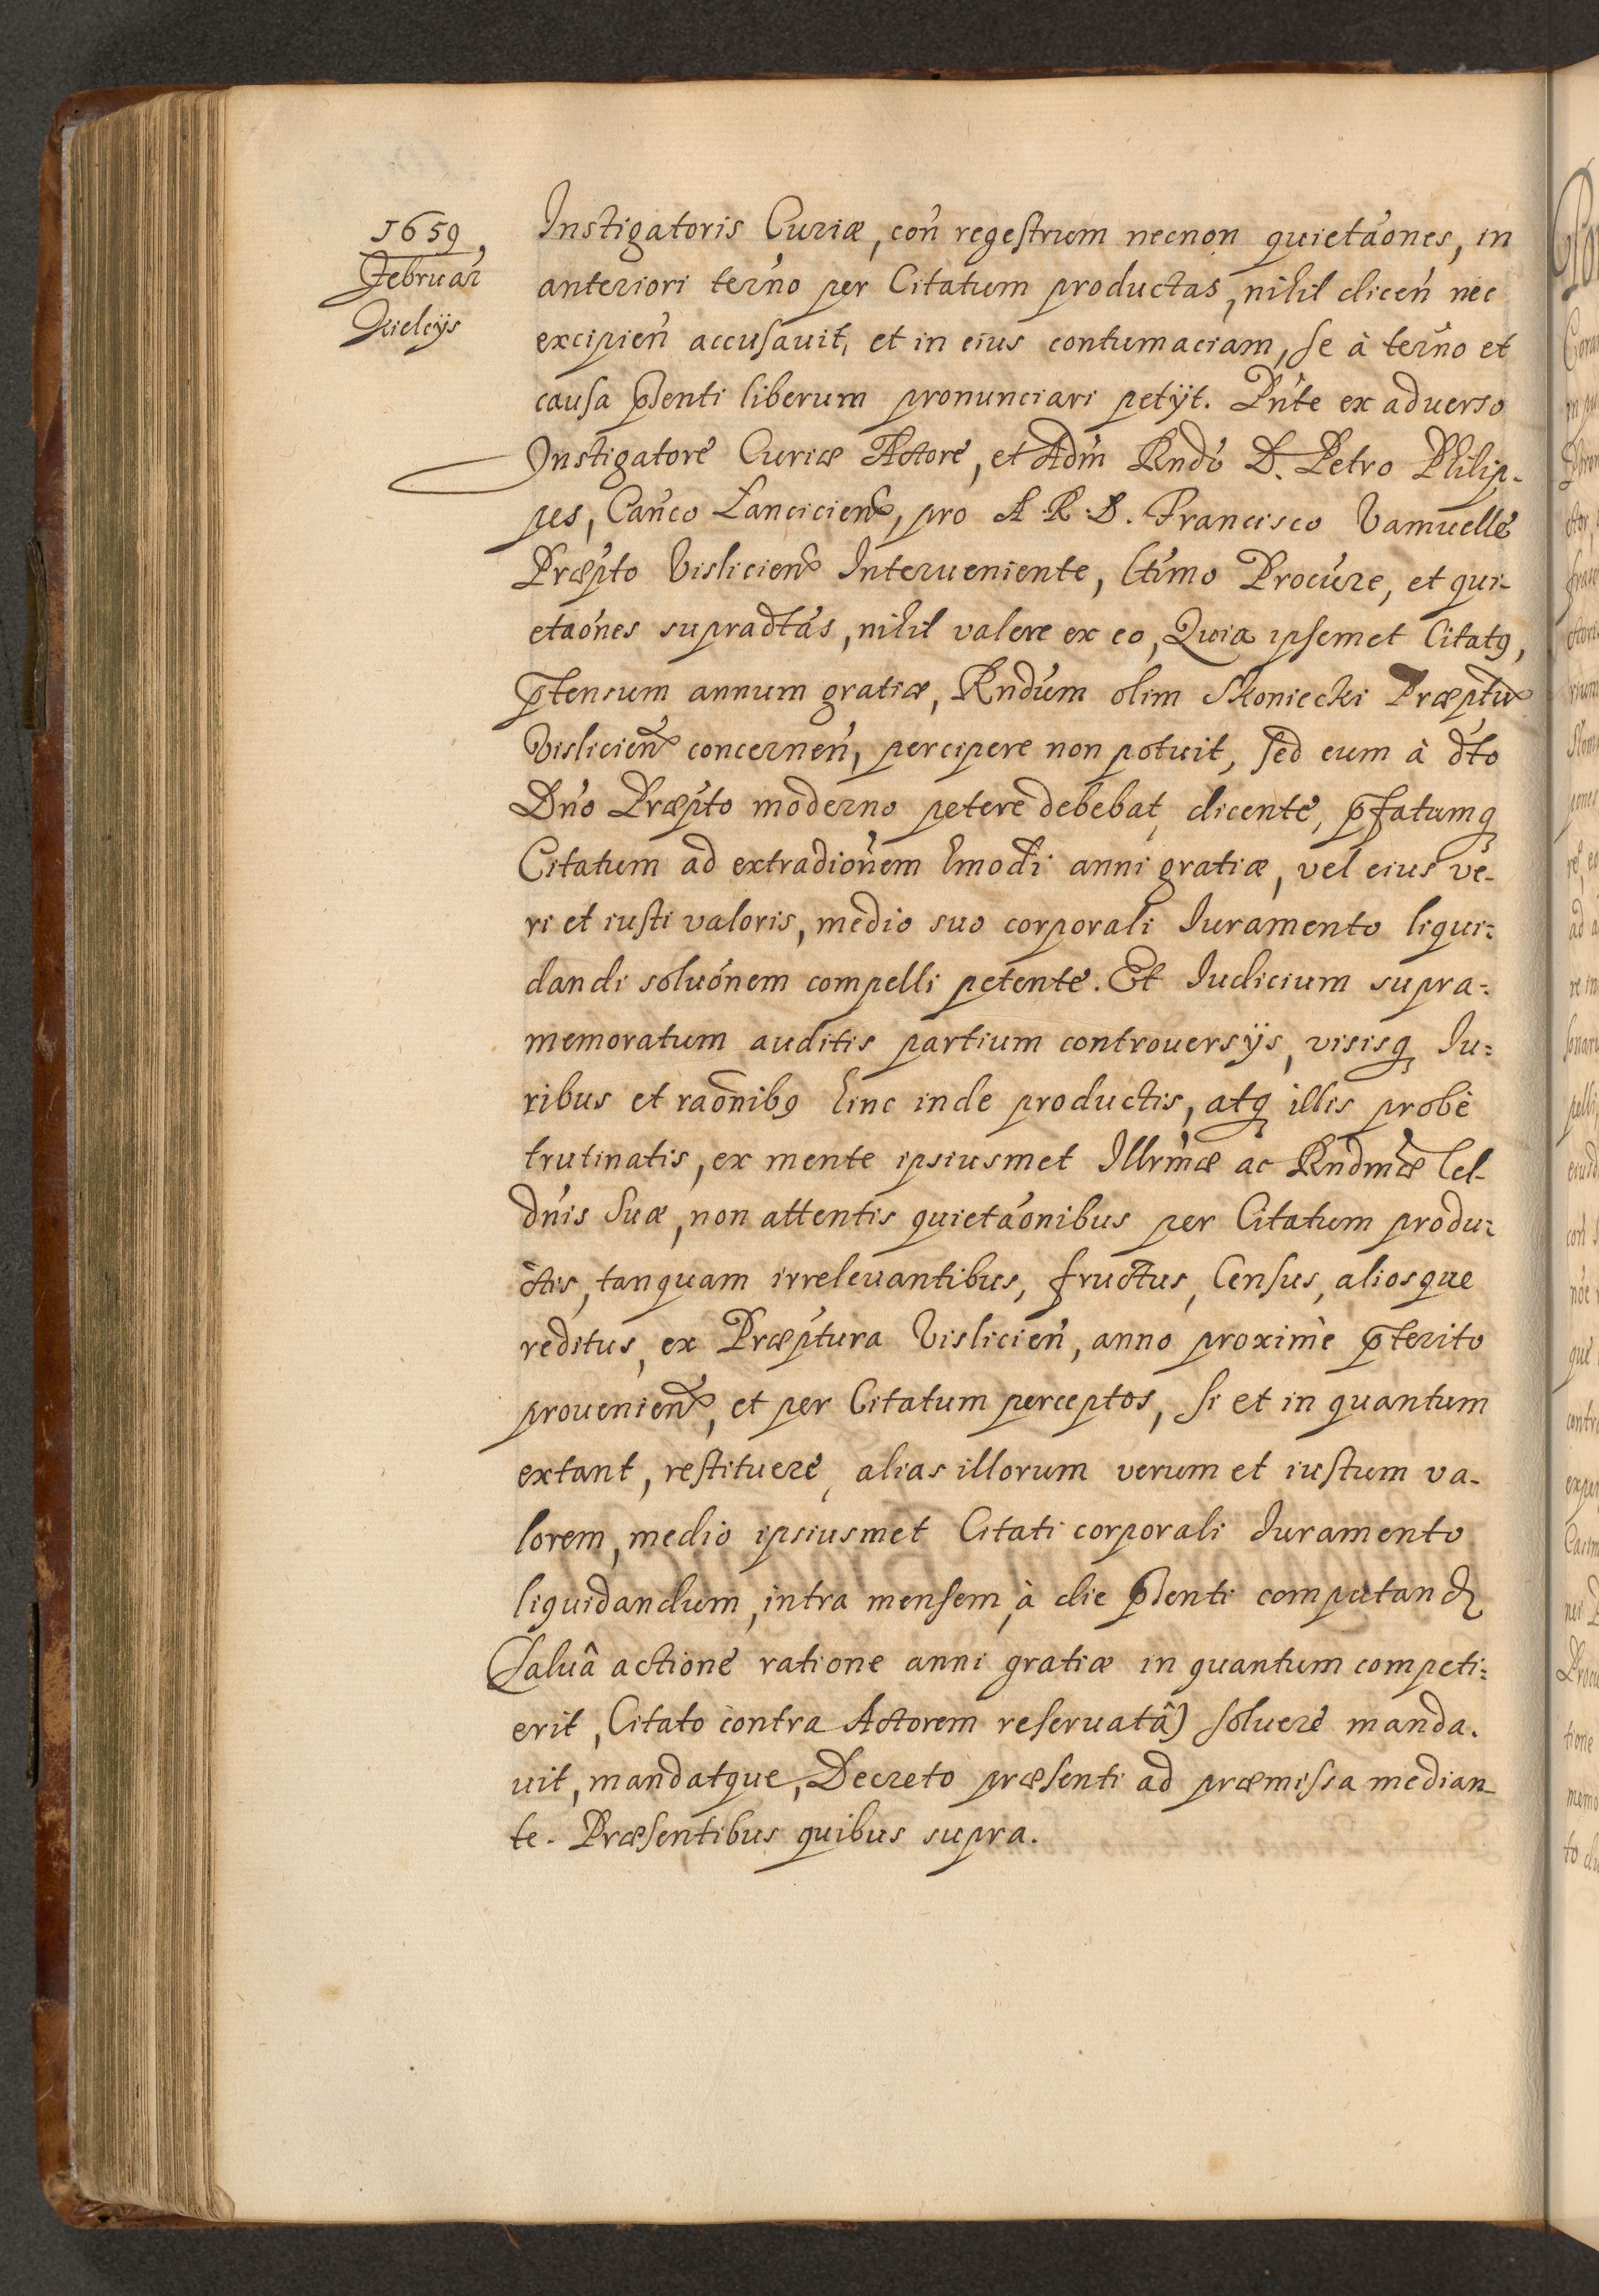 1659
Februar̃
Kielcijs
Instigatoris Curiæ, con̄ regestrum necnon quietãones, in
anteriori ter̃no per Citatum productas, nihil dicen̄ nec
excipien̄ accusauit, et in eius contumaciam, se à ter̃no et
causa p̄senti liberum pronunciari petÿt. Pn̄te ex aduerso
Instigatore Curiæ Actore, et Adm̄ Rndo D. Petro Philip-
pes, Can̄co Lancicien̄, pro A. R. D. Francisco Vamuelle
Præp̄to Vislicien̄ Interueniente, Ltimo Procure, et qui-
etaōnes supradtas, nihil valere ex eo, Quia ipsemet Citatꝰ,
p̄tensum annum gratiæ, Rndum olim Skoniecki Præptū
Vislicien̄ concernen̄, percipere non potuit, sed eum à dto
Dn̄o Præp̄to moderno petere debebat, dicente, p̄fatumq̃
Citatum ad extradiōnem hmodi anni gratiæ, vel eius ve-
ri et iusti valoris, medio suo corporali Iuramento liqui=
dandi soluōnem compelli petente. Et Iudicium supra=
memoratum auditis partium controuersÿs, visisq̃ Iu=
ribus et raōnibꝰ hinc inde productis, atq̃ illis probè
trutinatis, ex mente ipsiusmet Illrmæ ac Rndmæ Cel-
dn̄is Suæ, non attentis quietãonibus per Citatum produ=
ctis, tanquam irreleuantibus, fructus, Census, aliosque
reditus, ex Præp̄tura Vislicien̄, anno proximè p̄terito
prouenien̄, et per Citatum perceptos, si et in quantum
extant, restituere, alias illorum verum et iustum va-
lorem, medio ipsiusmet Citati corporali Iuramento
liquidandum, intra mensem, à die p̄senti computand
(saluâ actione ratione anni gratiæ in quantum competi=
erit, Citato contra Actorem reseruatâ) soluere manda-
uit, mandatque, Decreto præsenti ad præmissa median-
te. Præsentibus quibus supra.